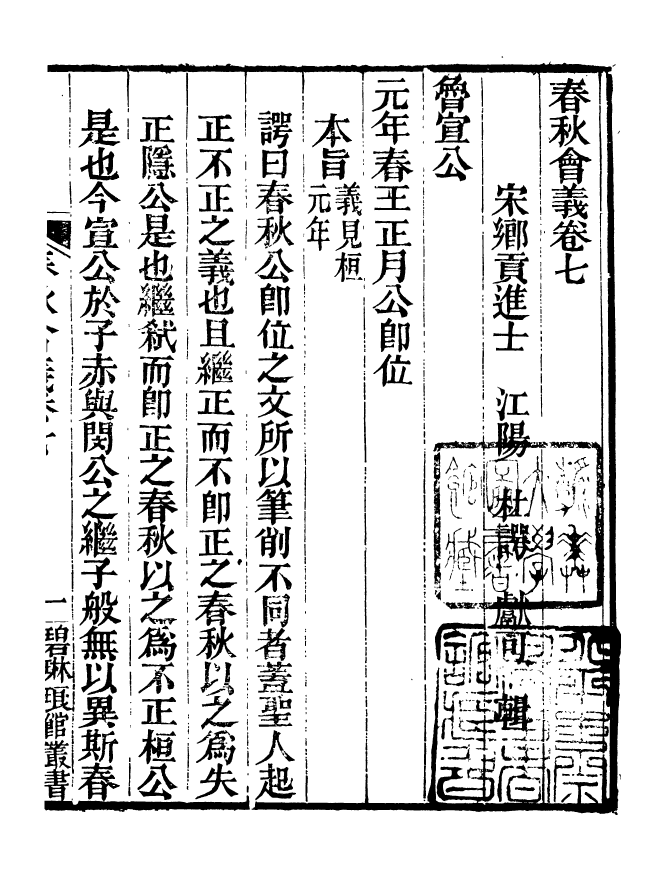 春秋會義卷七
宋鄉貢進士　江陽　杜諤　獻可　輯
魯宣公
元年春王正月公卽位
本旨義見桓
元年
諤曰春秋公卽位之文所以筆削不同者蓋聖人起
正不正之義也且繼正而不卽正之春秋以之爲失
正隱公是也繼弒而卽正之春秋以之爲不正桓公
是也今宣公於子赤與閔公之繼子般無以異斯春
春秋會義卷七
一
碧琳琅館叢書